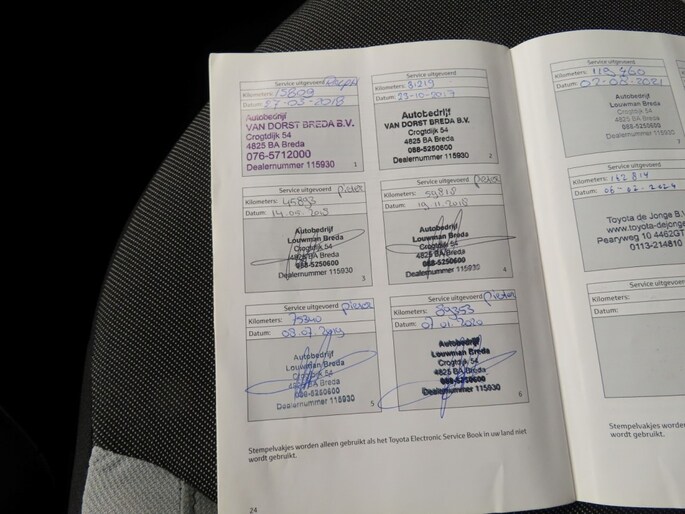 Service uitgevoerd Ralph
Kilometers: 15809
Datum: 24-05-2018
Autobedrijf
VAN DORST BREDA B.V.
Crogtdijk 54
4825 BA Breda
076-5712000
Dealernummer 115930
1
Service uitgevoerd
Kilometers: 31219
Datum: 23-10-2017
Autobedrijf
VAN DORST BREDA B.V.
Crogtdijk 54
4825 BA Breda
088-5250600
Dealernummer 115930
2
Service uitgevoerd Pieter
Kilometers: 45893
Datum: 14.05.2018
Autobedrijf
Louwman Breda
Crogtdijk 54
4825 BA Breda
088-5250600
Dealernummer 115930
3
Service uitgevoerd Pieter
Kilometers: 59818
Datum: 19.11.2018
Autobedrijf
Louwman Breda
Crogtdijk 54
4825 BA Breda
088-5250600
Dealernummer 115930
4
Service uitgevoerd Pieter
Kilometers: 75340
Datum: 08.07.2019
Autobedrijf
Louwman Breda
Crogtdijk 54
4825 BA Breda
088-5250600
Dealernummer 115930
5
Service uitgevoerd Pieter
Kilometers: 89353
Datum: 07.01.2020
Autobedrijf
Louwman Breda
Crogtdijk 54
4825 BA Breda
088-5250600
Dealernummer 115930
6
Stempelvakjes worden alleen gebruikt als het Toyota Electronic Service Book in uw land niet
wordt gebruikt.
24
Service uitgevoerd
Kilometers: 119 460
Datum: 02-08-2021
Autobedrijf
Louwman Breda
Crogtdijk 54
4825 BA Breda
088-5250600
Dealernummer 115930
7
Service uitgevoerd
Kilometers: 142 814
Datum: 06-02-2024
Toyota de Jonge B.V
www.toyota-dejonge
Pearyweg 10 4462GT
0113-214810
Service
Kilometers:
Datum:
Stempelvakjes worden
wordt gebruikt.